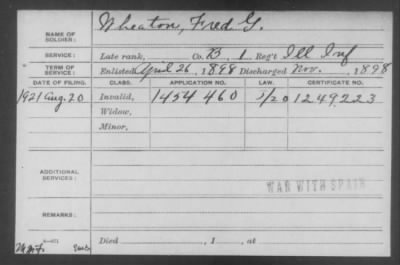 NAME OF SOLDIER: Wheaton, Fred G.
SERVICE: Late rank, Co. B, 1 Reg't Ill Inf
TERM OF SERVICE: Enlisted April 26, 1898 Discharged Nov. , 1898
DATE OF FILING. CLASS. APPLICATION NO. LAW. CERTIFICATE NO.
1921 Aug. 20 Invalid, 1454 460 1249223
Widow,
Minor,
ADDITIONAL SERVICES:
WAR WITH SPAIN
REMARKS:
Died , 1 , at